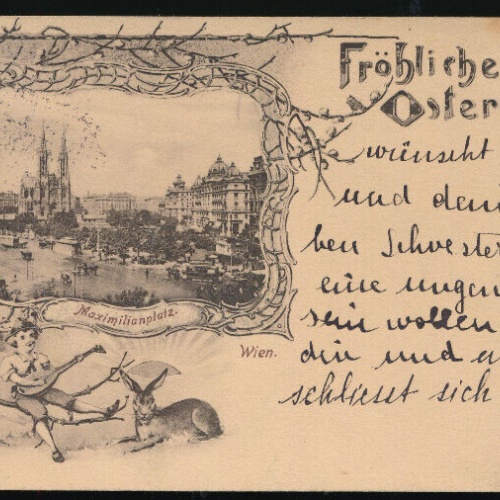 Fröhliche
Oster
wünscht
und den
ben Schwester
eine ungen
sein wollen
din und a
schliesst sich
Maximilianplatz.
Wien.